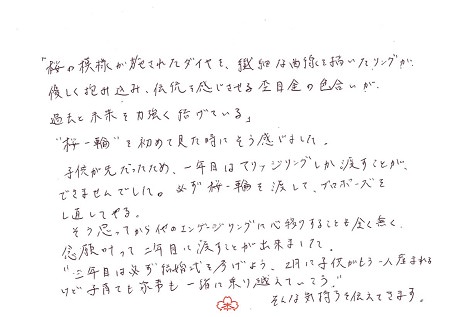 「桜の模様が施されたダイヤを、繊細な曲線を描いたリングが
優しく抱み込み、伝統を感じさせる杢目金の色合いが
過去と未来を力強く繋げている」
"桜一輪"を初めて見た時にそう感じました。
子供が先だったため、一年目はマリッジリングしか渡すことが
できませんでした。必ず桜一輪を渡して、プロポーズを
し直してやる。
そう思ってから他のエンゲージリングに心移りすることも全く無く、
念願叶って二年目に渡すことが出来ました。
"三年目は必ず結婚式を挙げよう、2月に子供がもう一人産まれる
けど子育ても家事も一緒に乗り越えていこう"
そんな気持ちを伝えてきます。